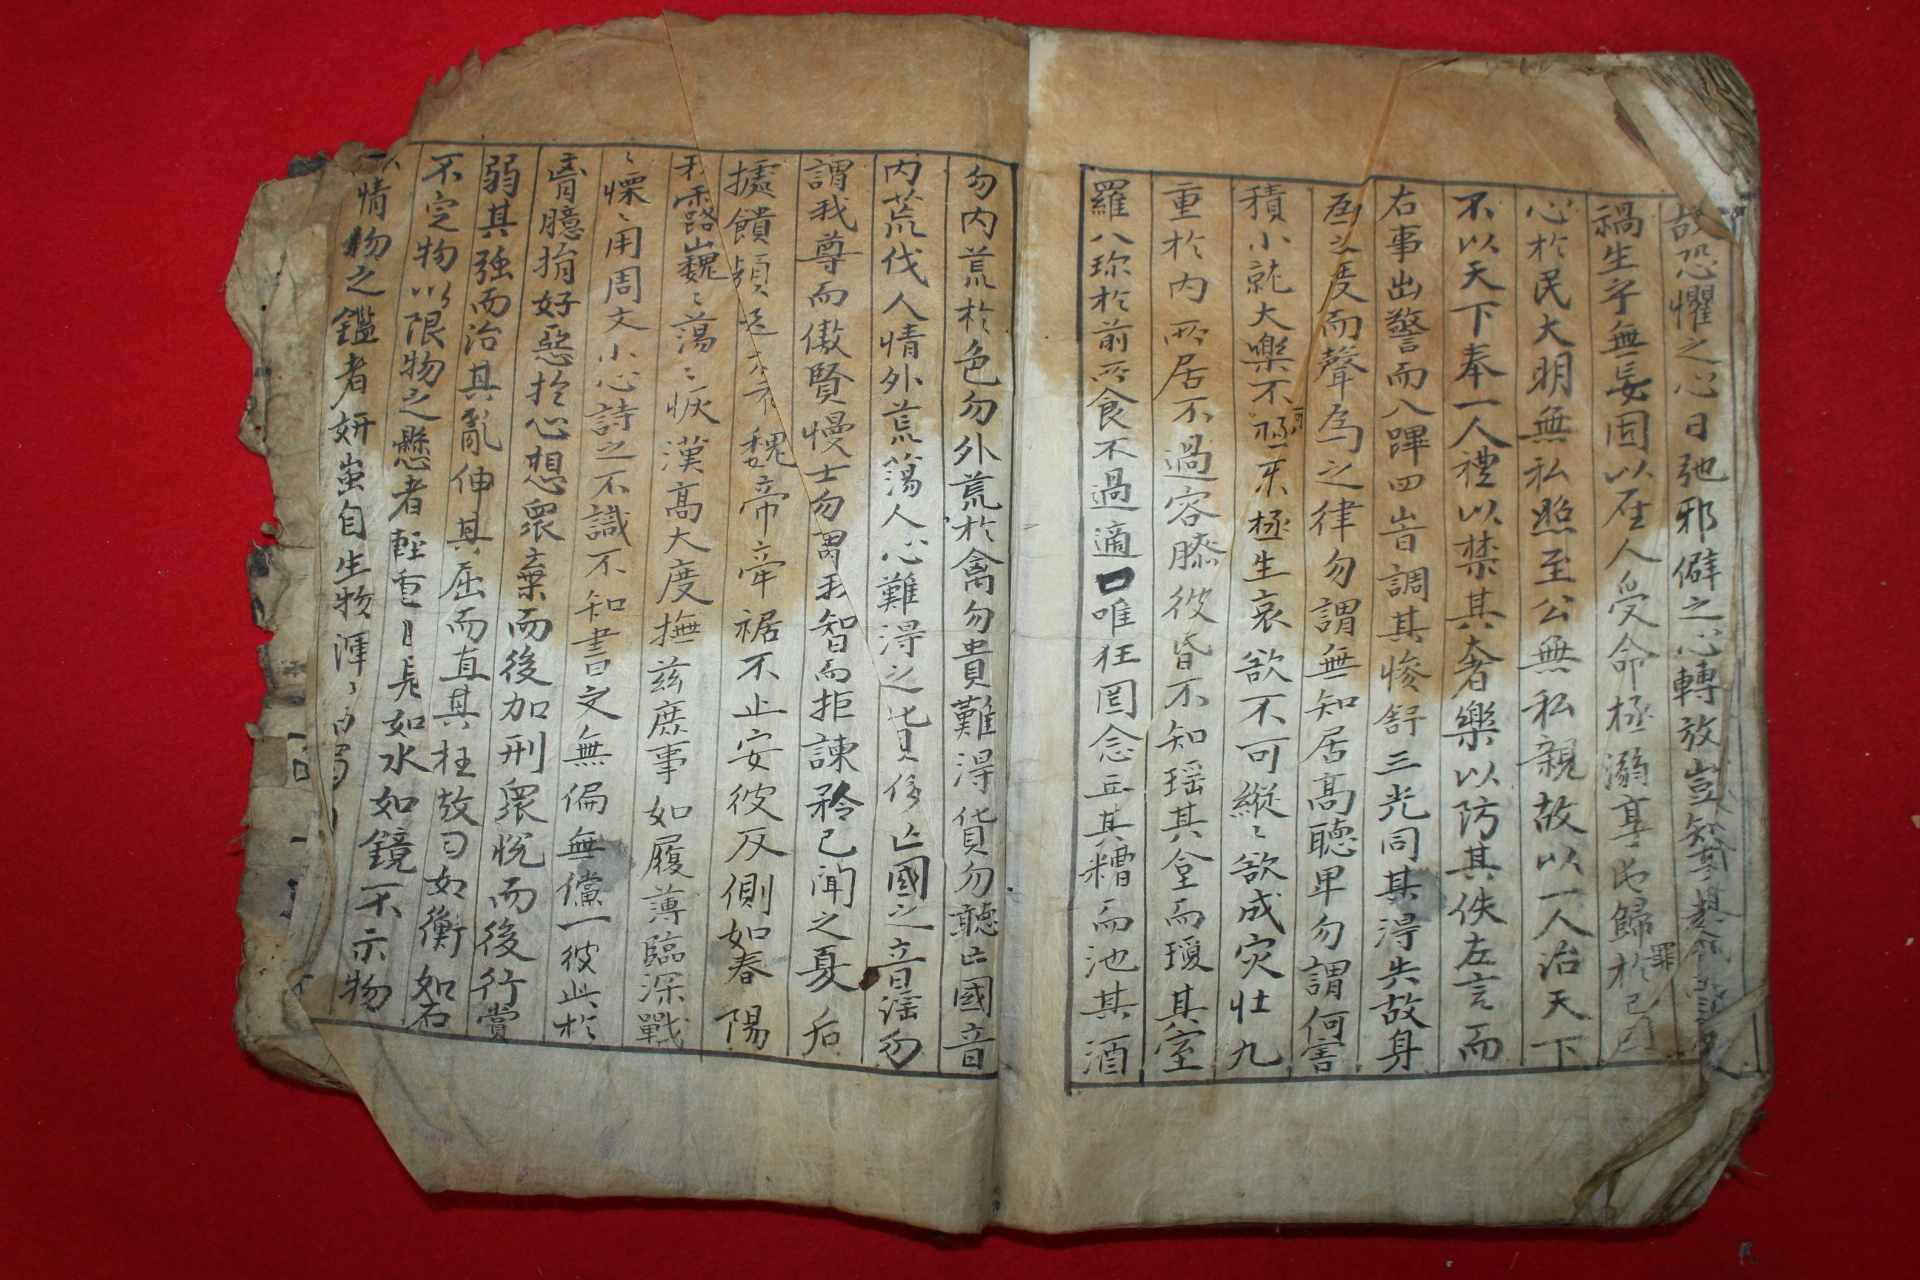 故恐懼之心日弛邪僻之心轉放豈知
禍生乎無妄固以聖人受命極溺亨屯歸罪於己因
心於民大明無私照至公無私親故以一人治天下
不以天下奉一人禮以禁其奢樂以防其佚左言而
右事出警而入蹕四旹調其慘舒三光同其淂失故身
爲之度而聲爲之律勿謂無知居高聽卑勿謂何害
積小就大樂不可極〻樂極生哀欲不可縱〻欲成灾壯九
重於内所居不過容膝彼昏不知瑶其臺而瓊其室
羅八珎於前所食不過適口唯狂罔念丘其糟而池其酒
勿内荒於色勿外荒於禽勿貴難淂貨勿聽亡國音
内荒伐人情外荒蕩人心難淂之貨侈亡國之音滛勿
謂我尊而傲賢慢士勿謂我智而拒諫矜己聞之夏后
據饋頻起亦有魏帝牽裾不止安彼反側如春陽
秋露巍〻蕩〻恢漢高大度撫兹庶事如履薄臨深戰
〻慄〻用周文小心詩之不識不知書之無偏無儻一彼此於
胷臆捐好惡於心想衆棄而後加刑衆悅而後行賞
弱其强而治其亂伸其屈而直其枉故曰如衡如石
不定物以限物之懸者輕重自見如水如鏡不示物
以情物之鑑者妍蚩自生物渾〻